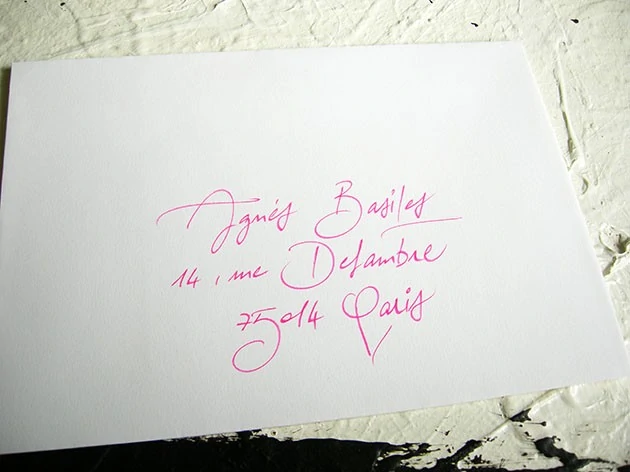 Agnès Basiles
14, rue Delambre
75014 Paris